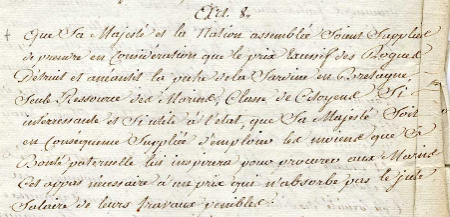 Art. 8.
Que Sa Majesté et la Nation assemblée Soient Suppliés
de prendre en Considération que le prix Excessif des Rogues
Détruit et anéantit la pêche de la Sardine en Bretagne,
Seule Ressource des Marins, Classe de Citoyens Si
intéressante et Si utile à l'état, que Sa Majesté Soit
en Conséquence Suppliée d'emploier les moiens que Sa
Bonté paternelle lui inspirera pour procurer aux Marins
Cet appas nécessaire à un prix qui n'absorbe pas le juste
Salaire de leurs travaux penibles.